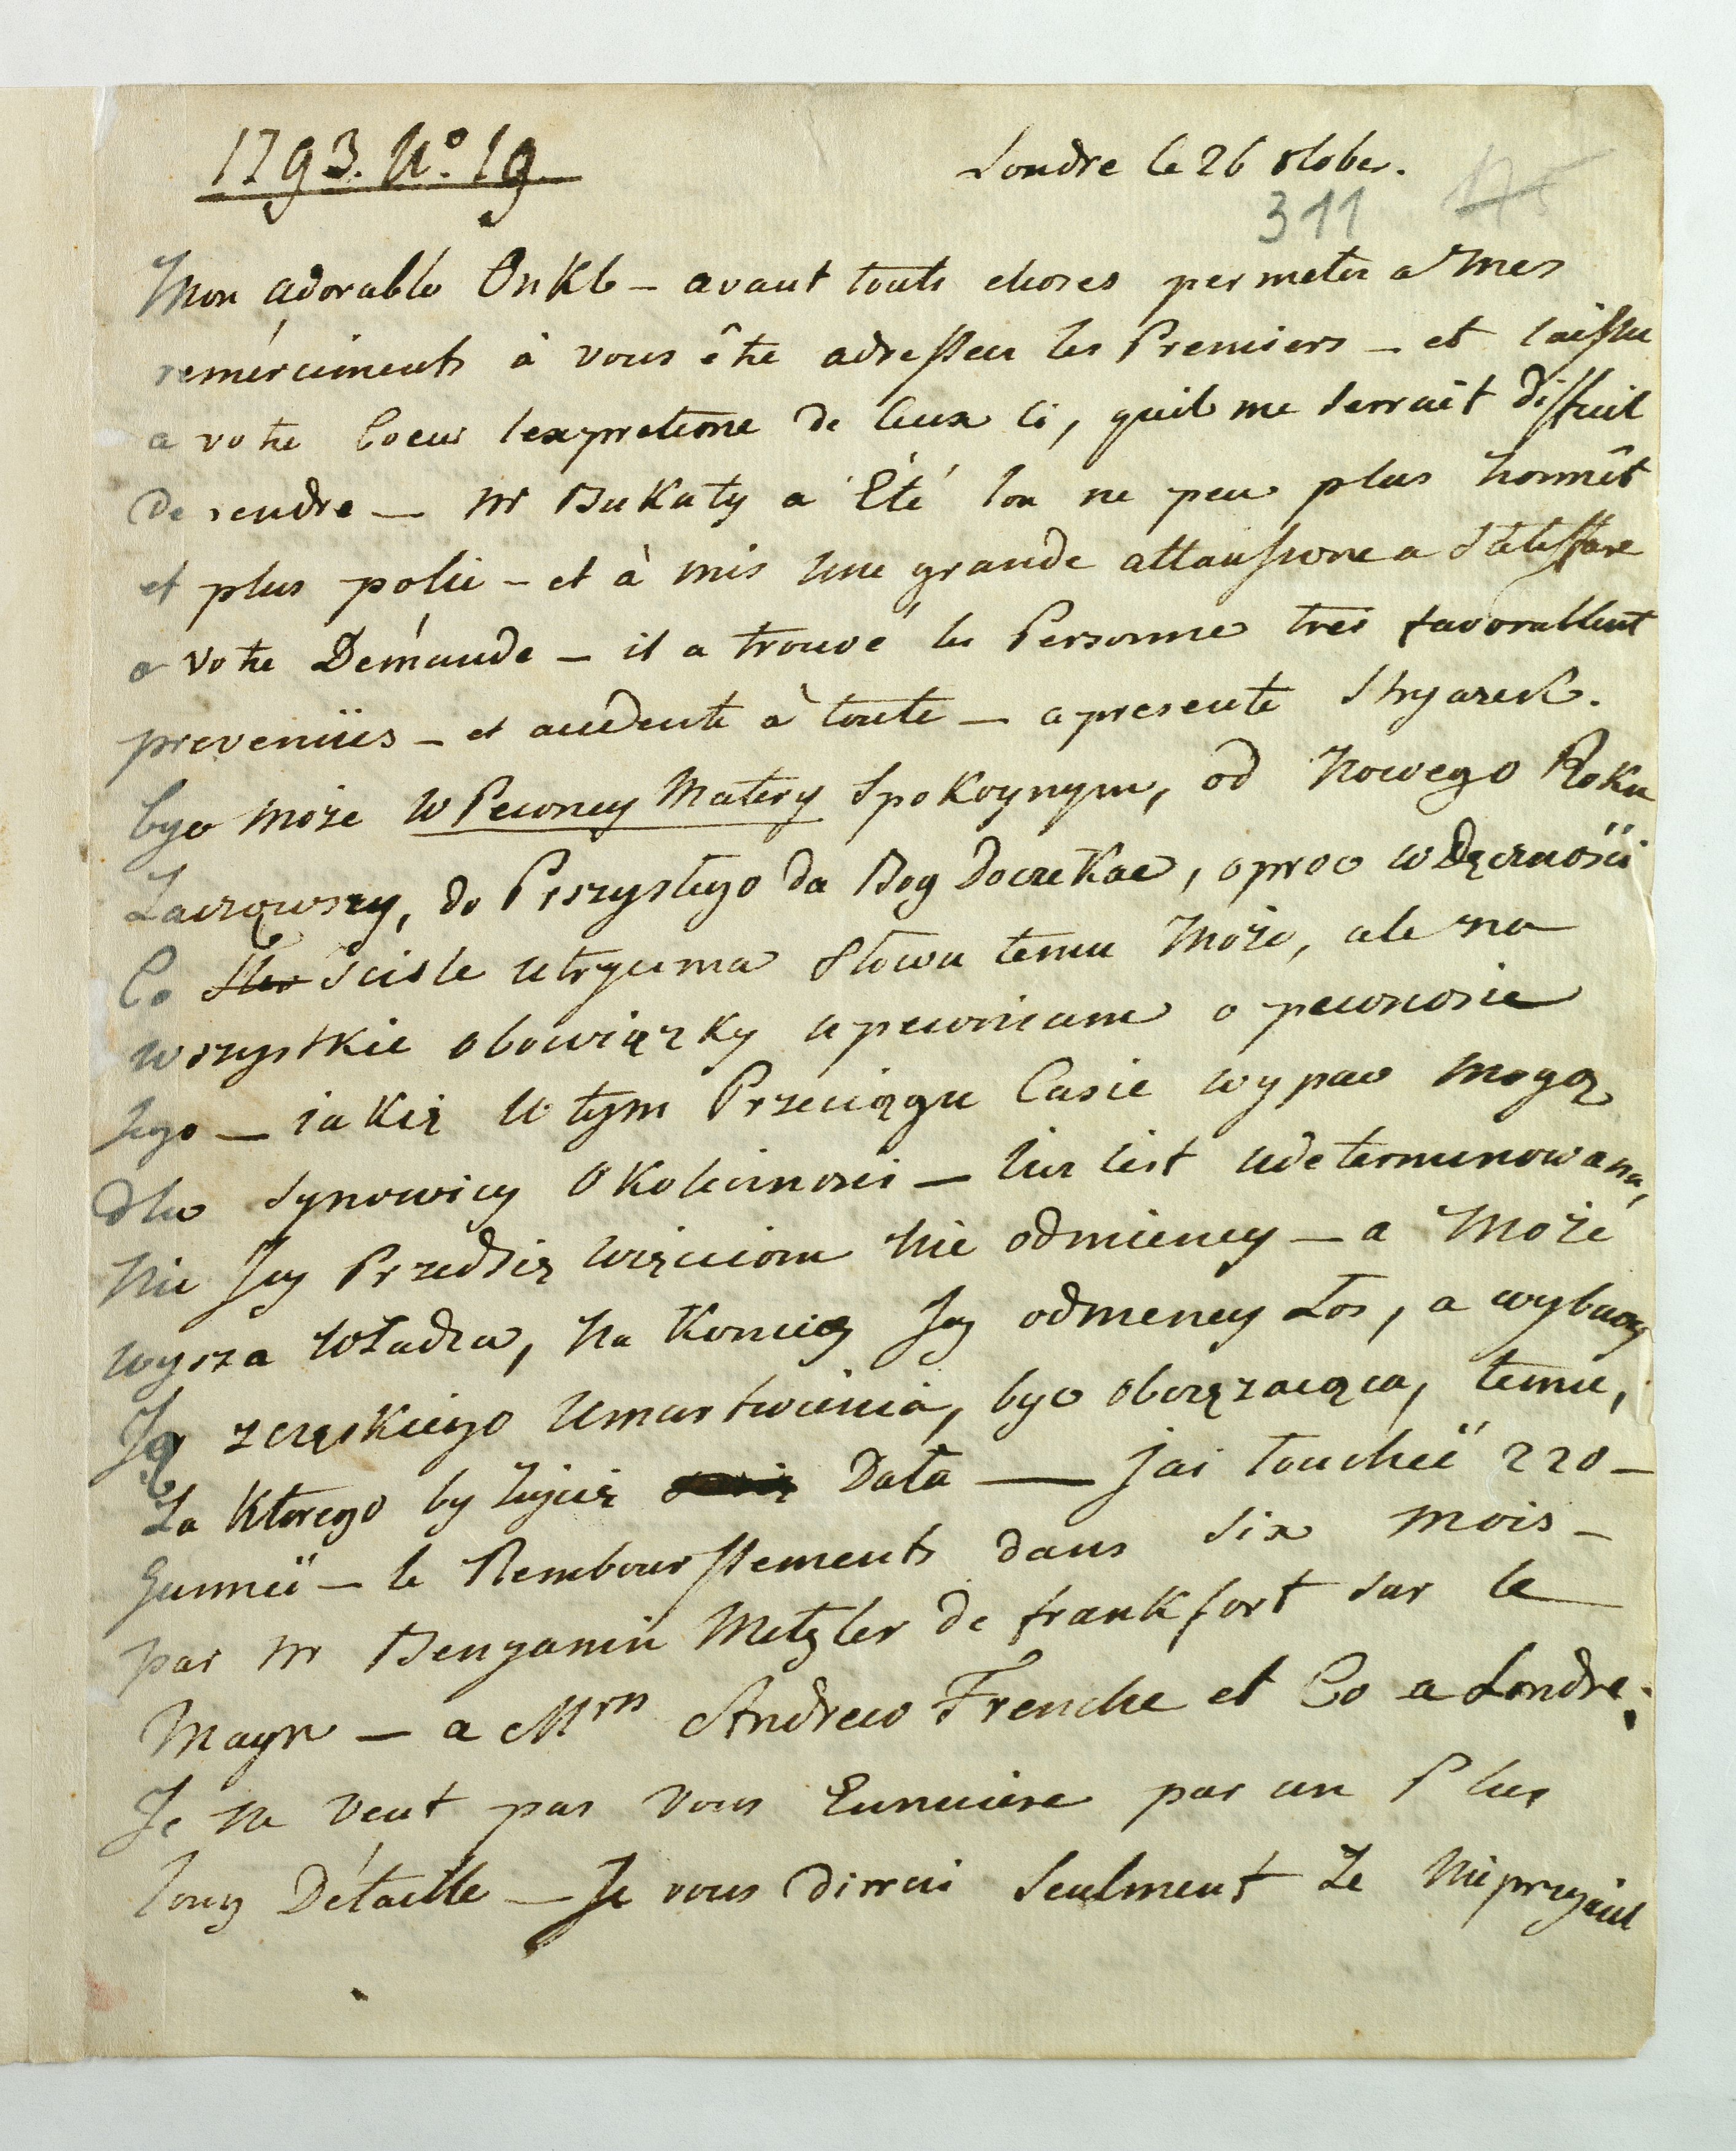 1793. No. 19
Londre le 26 8tober.
311
Mon adorable Onkle - avant touts choses permeter a mes
remérciments à vous étre adressen les Premiers - et laisser
a votre Coeur lexpretione de Ceux Ci, quil me serrait difficil
de rendre - Mr Bukaty a Eté lon ne peu plus honnêt
et plus polie - et à mis une grande attansione a satisffare
a votre Demánde - il a trouvé les Personne tres favorablent
preveniies - et accdente à toute - a presente Stryazek.
byc moze w Pewney Matery Spokoynym, od Nowego Roku
Zacząwszy, do Prszyszlego da Bog doczekac, oproc wdęcznosci
Co scisle utrzyma Slowu temu moze, ale na
wszystkie obowiązky upewniam o pewnosic
Jego - iakię w tym Przeciągu Casie wypasc mogą
dla Synowicy Okolicznosci - lecz iest udeterminowana,
nic Jey Przedsię wzięciom nie odmieney - a Moze
wysza wladza, na koniec Jey odmeney Los, a wybawy
Ją zcięzkiego Umartwienia, byc obciązaiąca, temu,
Za Ktorego by Zyjcię Data - jai touchéé 220 -
Gunnéé - le Rembourssements dans six mois -
par Mr Benjamin Metzler de frankfort sur le
Mayn - a Mrs Andrew Frenche et Co a Londre.
Je ne veut pas vous Ennuiere par un Plus
long Détaille - Je vous dirrai Seulment Ze nieprzyiaciel